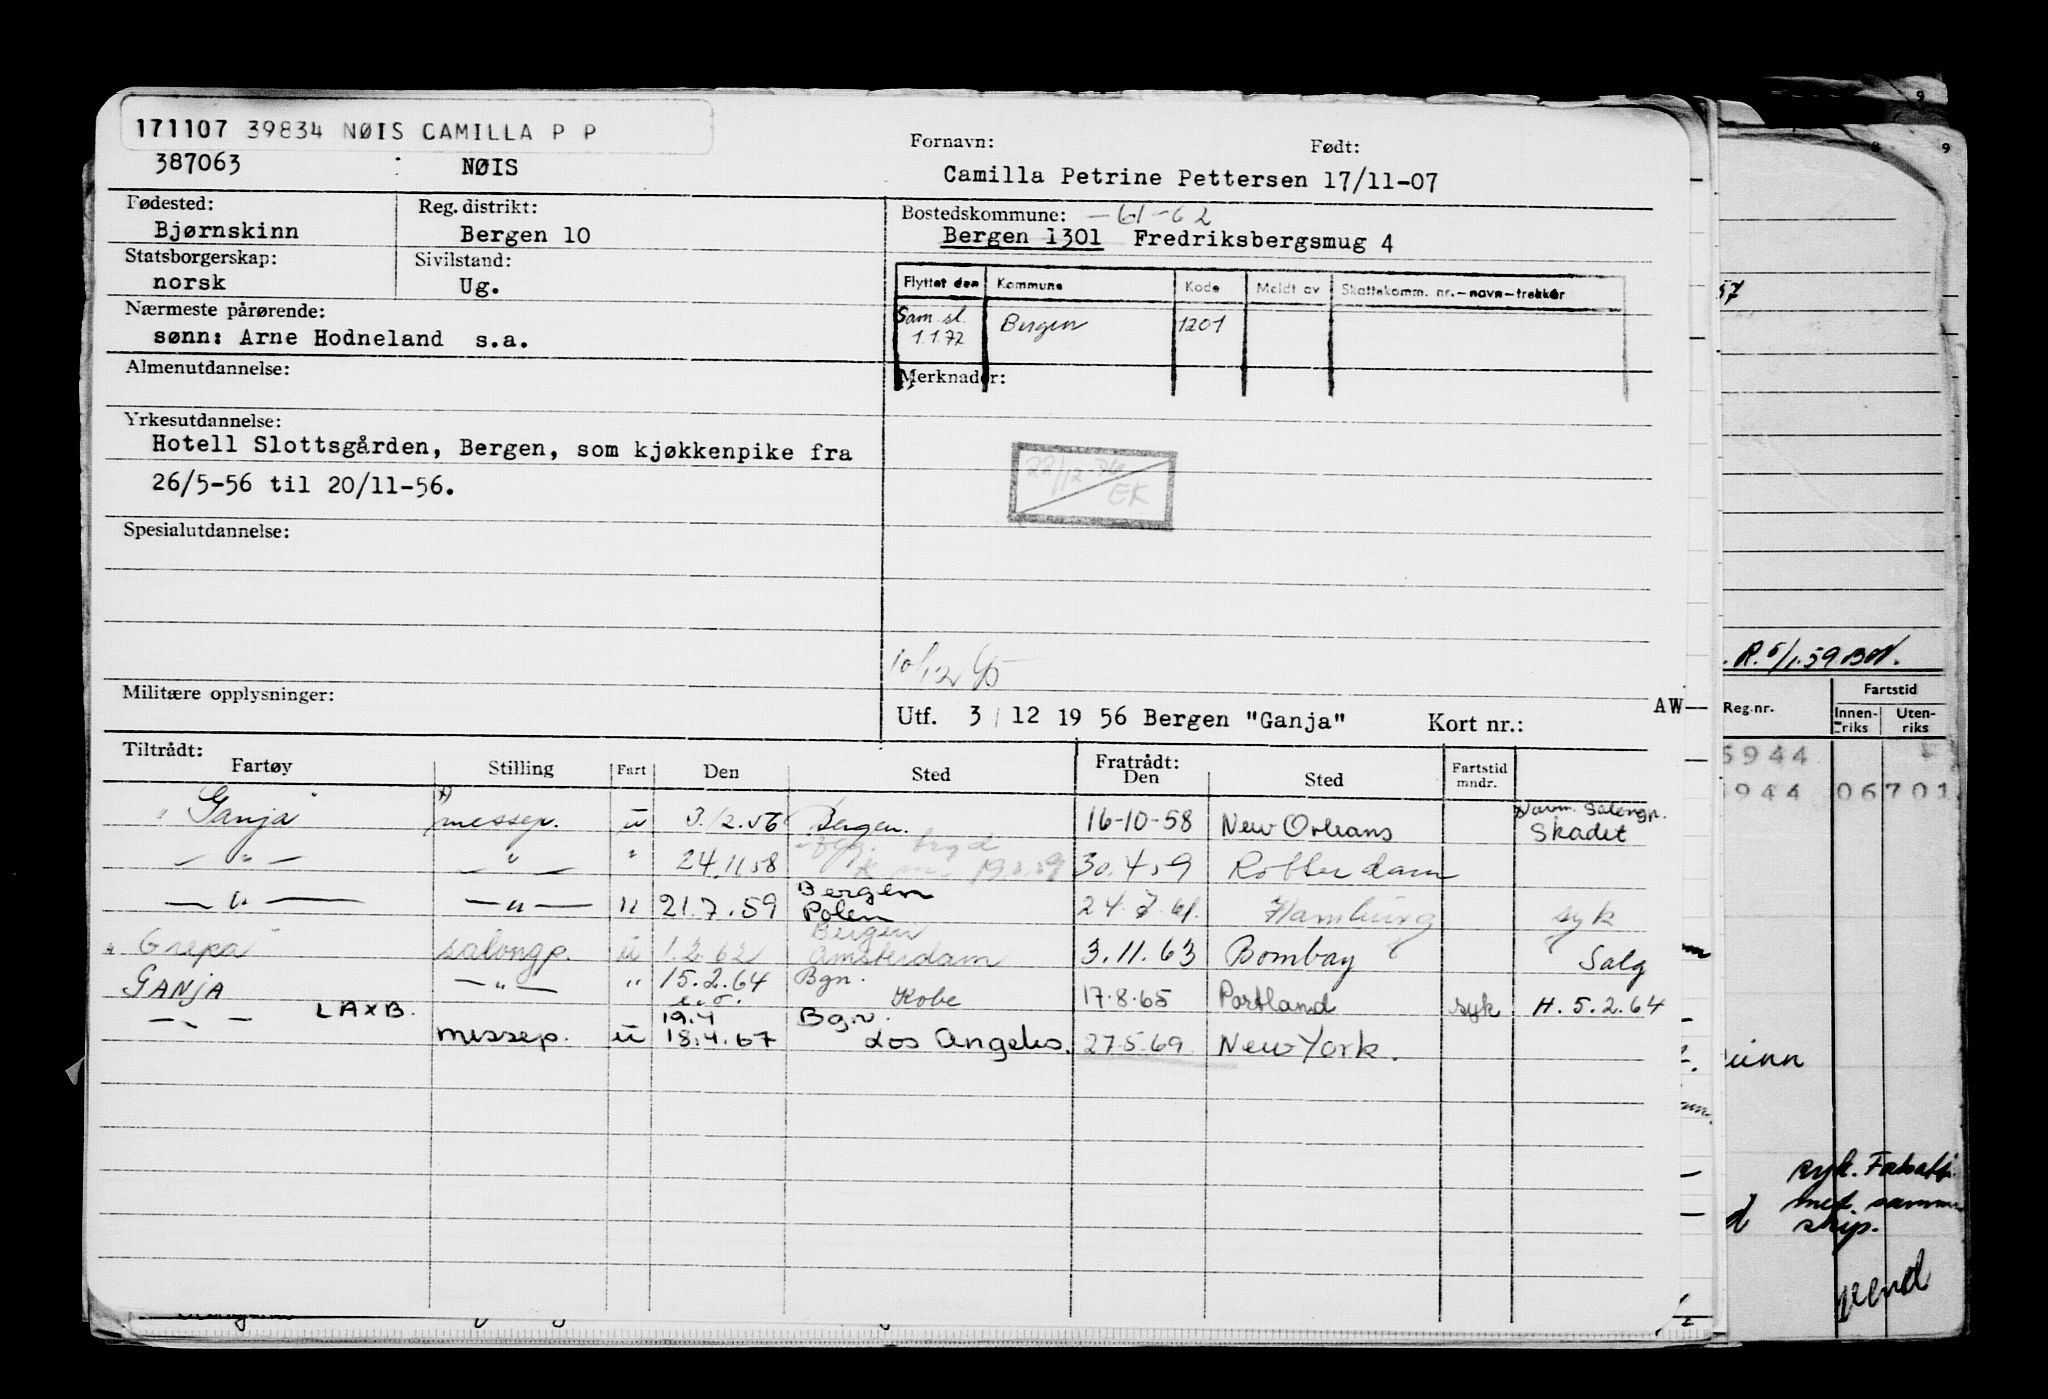 171107 39834 NØIS CAMILLA P P
387063 NØIS
Fornavn: Født:
Camilla Petrine Pettersen 17/11-07
Fødested: Reg. distrikt:
Bjørnskinn Bergen 10
Bostedskommune: -61-62
Bergen 1301 Fredriksbergsmug 4
Statsborgerskap: Sivilstand:
norsk Ug.
Flyttet den Kommune Kode Meldt av Skattekomm. nr.-navn-trekkår
Sam.sl. 1.1.72 Bergen 1201
Nærmeste pårørende:
sønn: Arne Hodneland s.a.
Almenutdannelse:
Merknader:
Yrkesutdannelse:
Hotell Slottsgården, Bergen, som kjøkkenpike fra
26/5-56 til 20/11-56.
22/12-76
EK
Spesialutdannelse:
10/12
Militære opplysninger:
Utf. 3/12 19 56 Bergen "Ganja" Kort nr.:
AW
Tiltrådt: Fratrådt:
Fartøy Stilling Fart Den Sted Den Sted Fartstid mndr.
"Ganja" messep. ü 3/12.56 Bergen. 16-10-58 New Orleans Skadet
— " — — " — " 24.11.58 30.4.59 Rotterdam
— " — — " — " 21.7.59 Bergen Polen 24.7.61. Hamburg syk
"Grepa" salongp. ü 1.2.62 Bergen Amsterdam 3.11.63 Bombay Salg
GANJA — " — " 15.2.64 Bgn. Kobe 17.8.65 Portland syk H. 5.2.64
— " — LAXB. messep. ü 19.4 18.4.67 Bgn. Los Angeles. 27.5.69 New York.
57
R. 5/1.59
Reg.nr. Fartstid
Innen-riks Uten-riks
5944
944 06701
syk.
med
skip.
vend